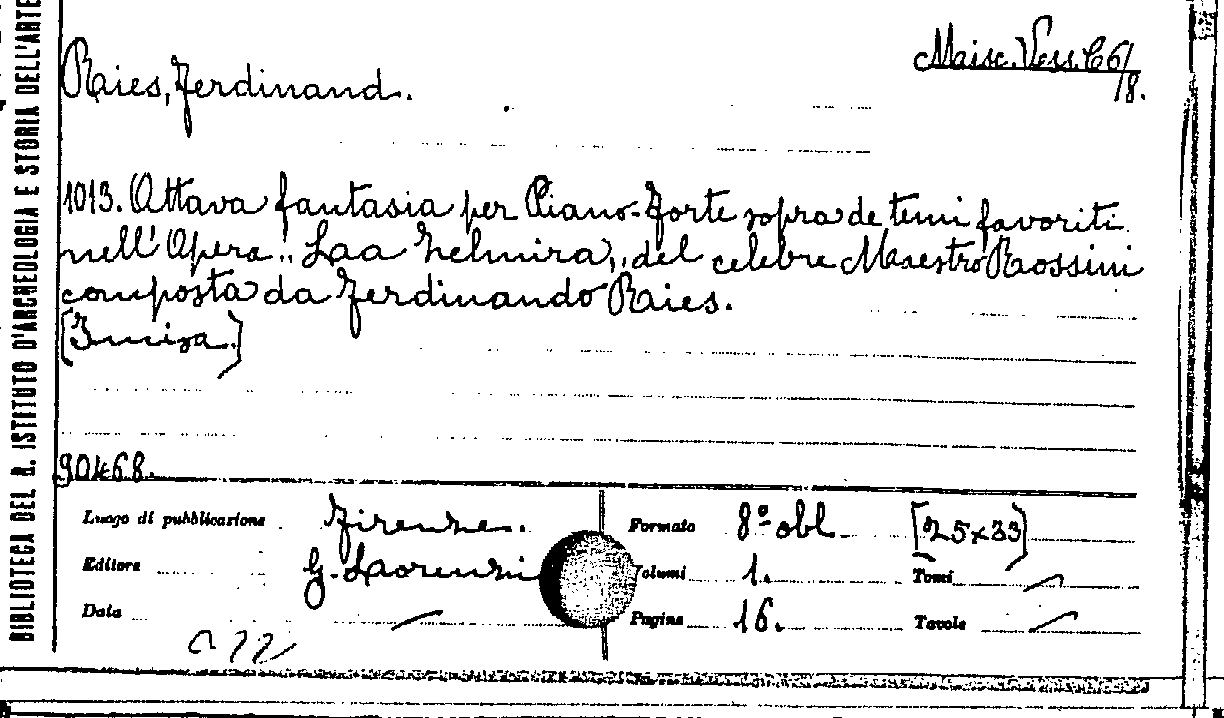 BIBLIOTECA DEL R. ISTITUTO D'ARCHEOLOGIA E STORIA DELL'ARTE
Maisc. Vess. C6/8.
Raies, Ferdinand.
1013. Ottava fantasia per Piano-Forte sopra de temi favoriti
nell'Opera „Laa Zelmira„ del celebre Maestro Raossini
composta da Ferdinando Raies.
[Incisa.]
90468.
Luogo di pubblicazione Firenze.
Formato 8º obl. [25x33]
Editore G. Laorenzi
Volumi 1.
Tomi /
Data /
Pagine 16.
Tavole /